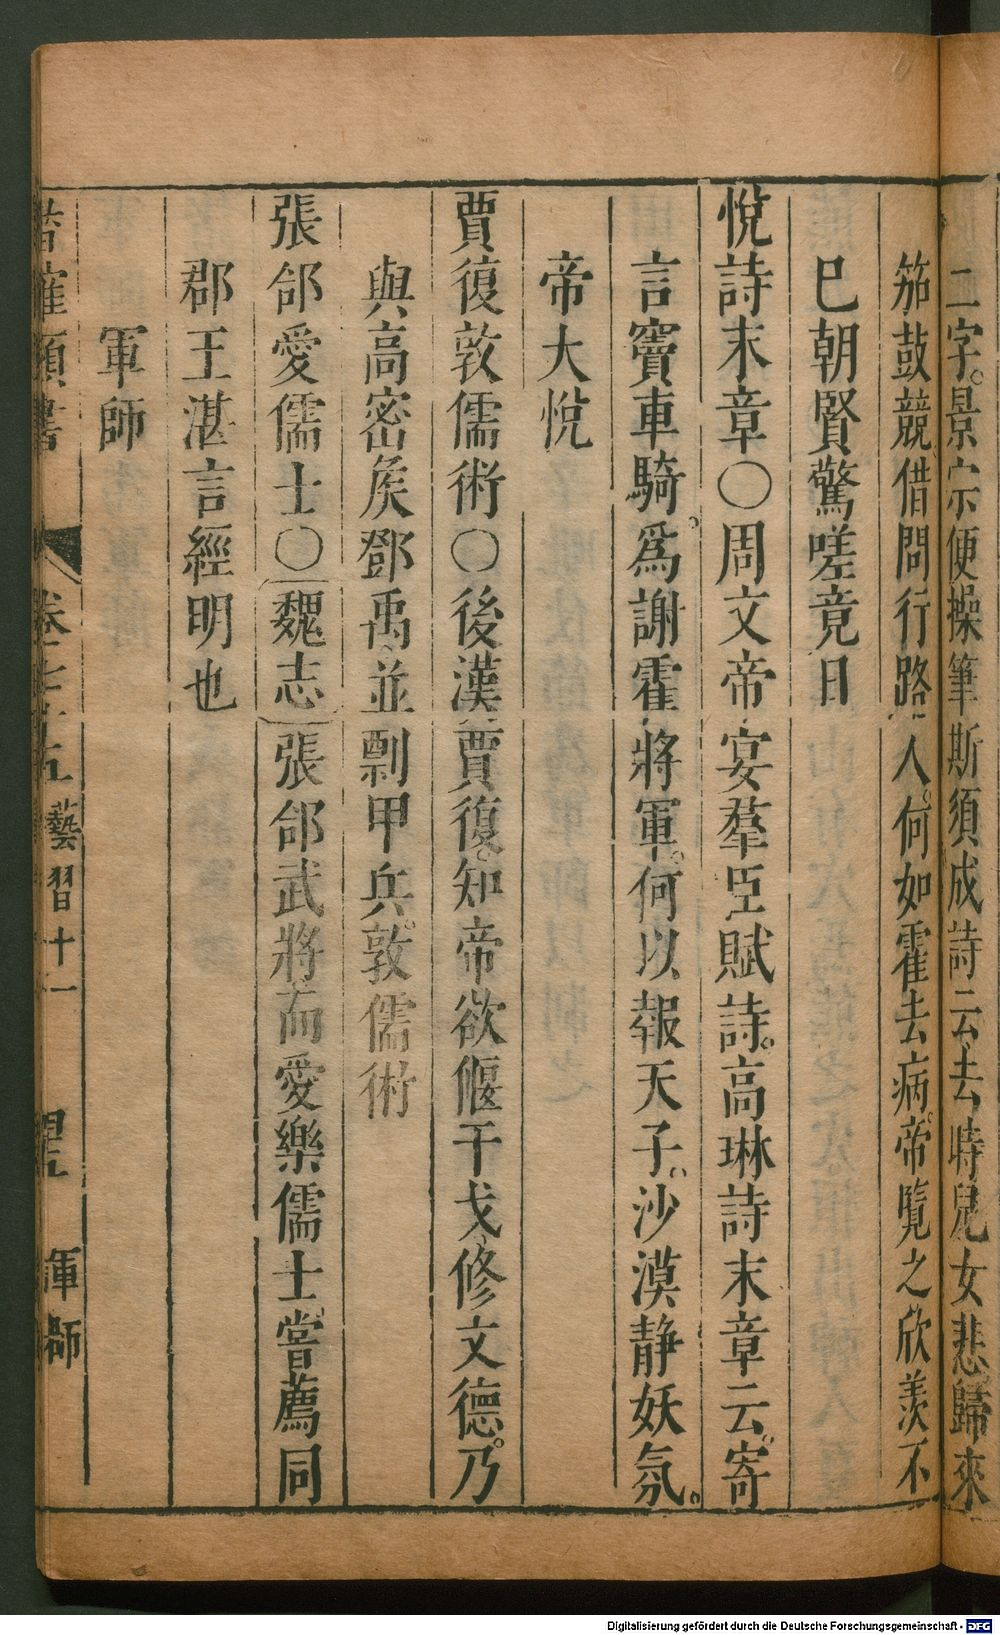 二字。景宗便操筆斯須成詩云去時兒女悲歸來
笳鼓競借問行路人。何如霍去病。帝覽之欣羡不
巳朝賢驚嗟竟日
悅詩末章○周文帝宴羣臣賦詩。高琳詩末章云。寄
言竇車騎。爲謝霍將軍。何以報天子。沙漠静妖氛。
帝大悅
賈復敦儒術○後漢賈復。知帝欲偃干戈、修文德。乃
與高密矦鄧禹、並剽甲兵。敦儒術
張郃愛儒士○魏志張郃武將而愛樂儒士。嘗薦同
郡王湛言經明也
軍師
卷 五 藝習十一
Digitalisierung gefördert durch die Deutsche Forschungsgemeinschaft - DFG